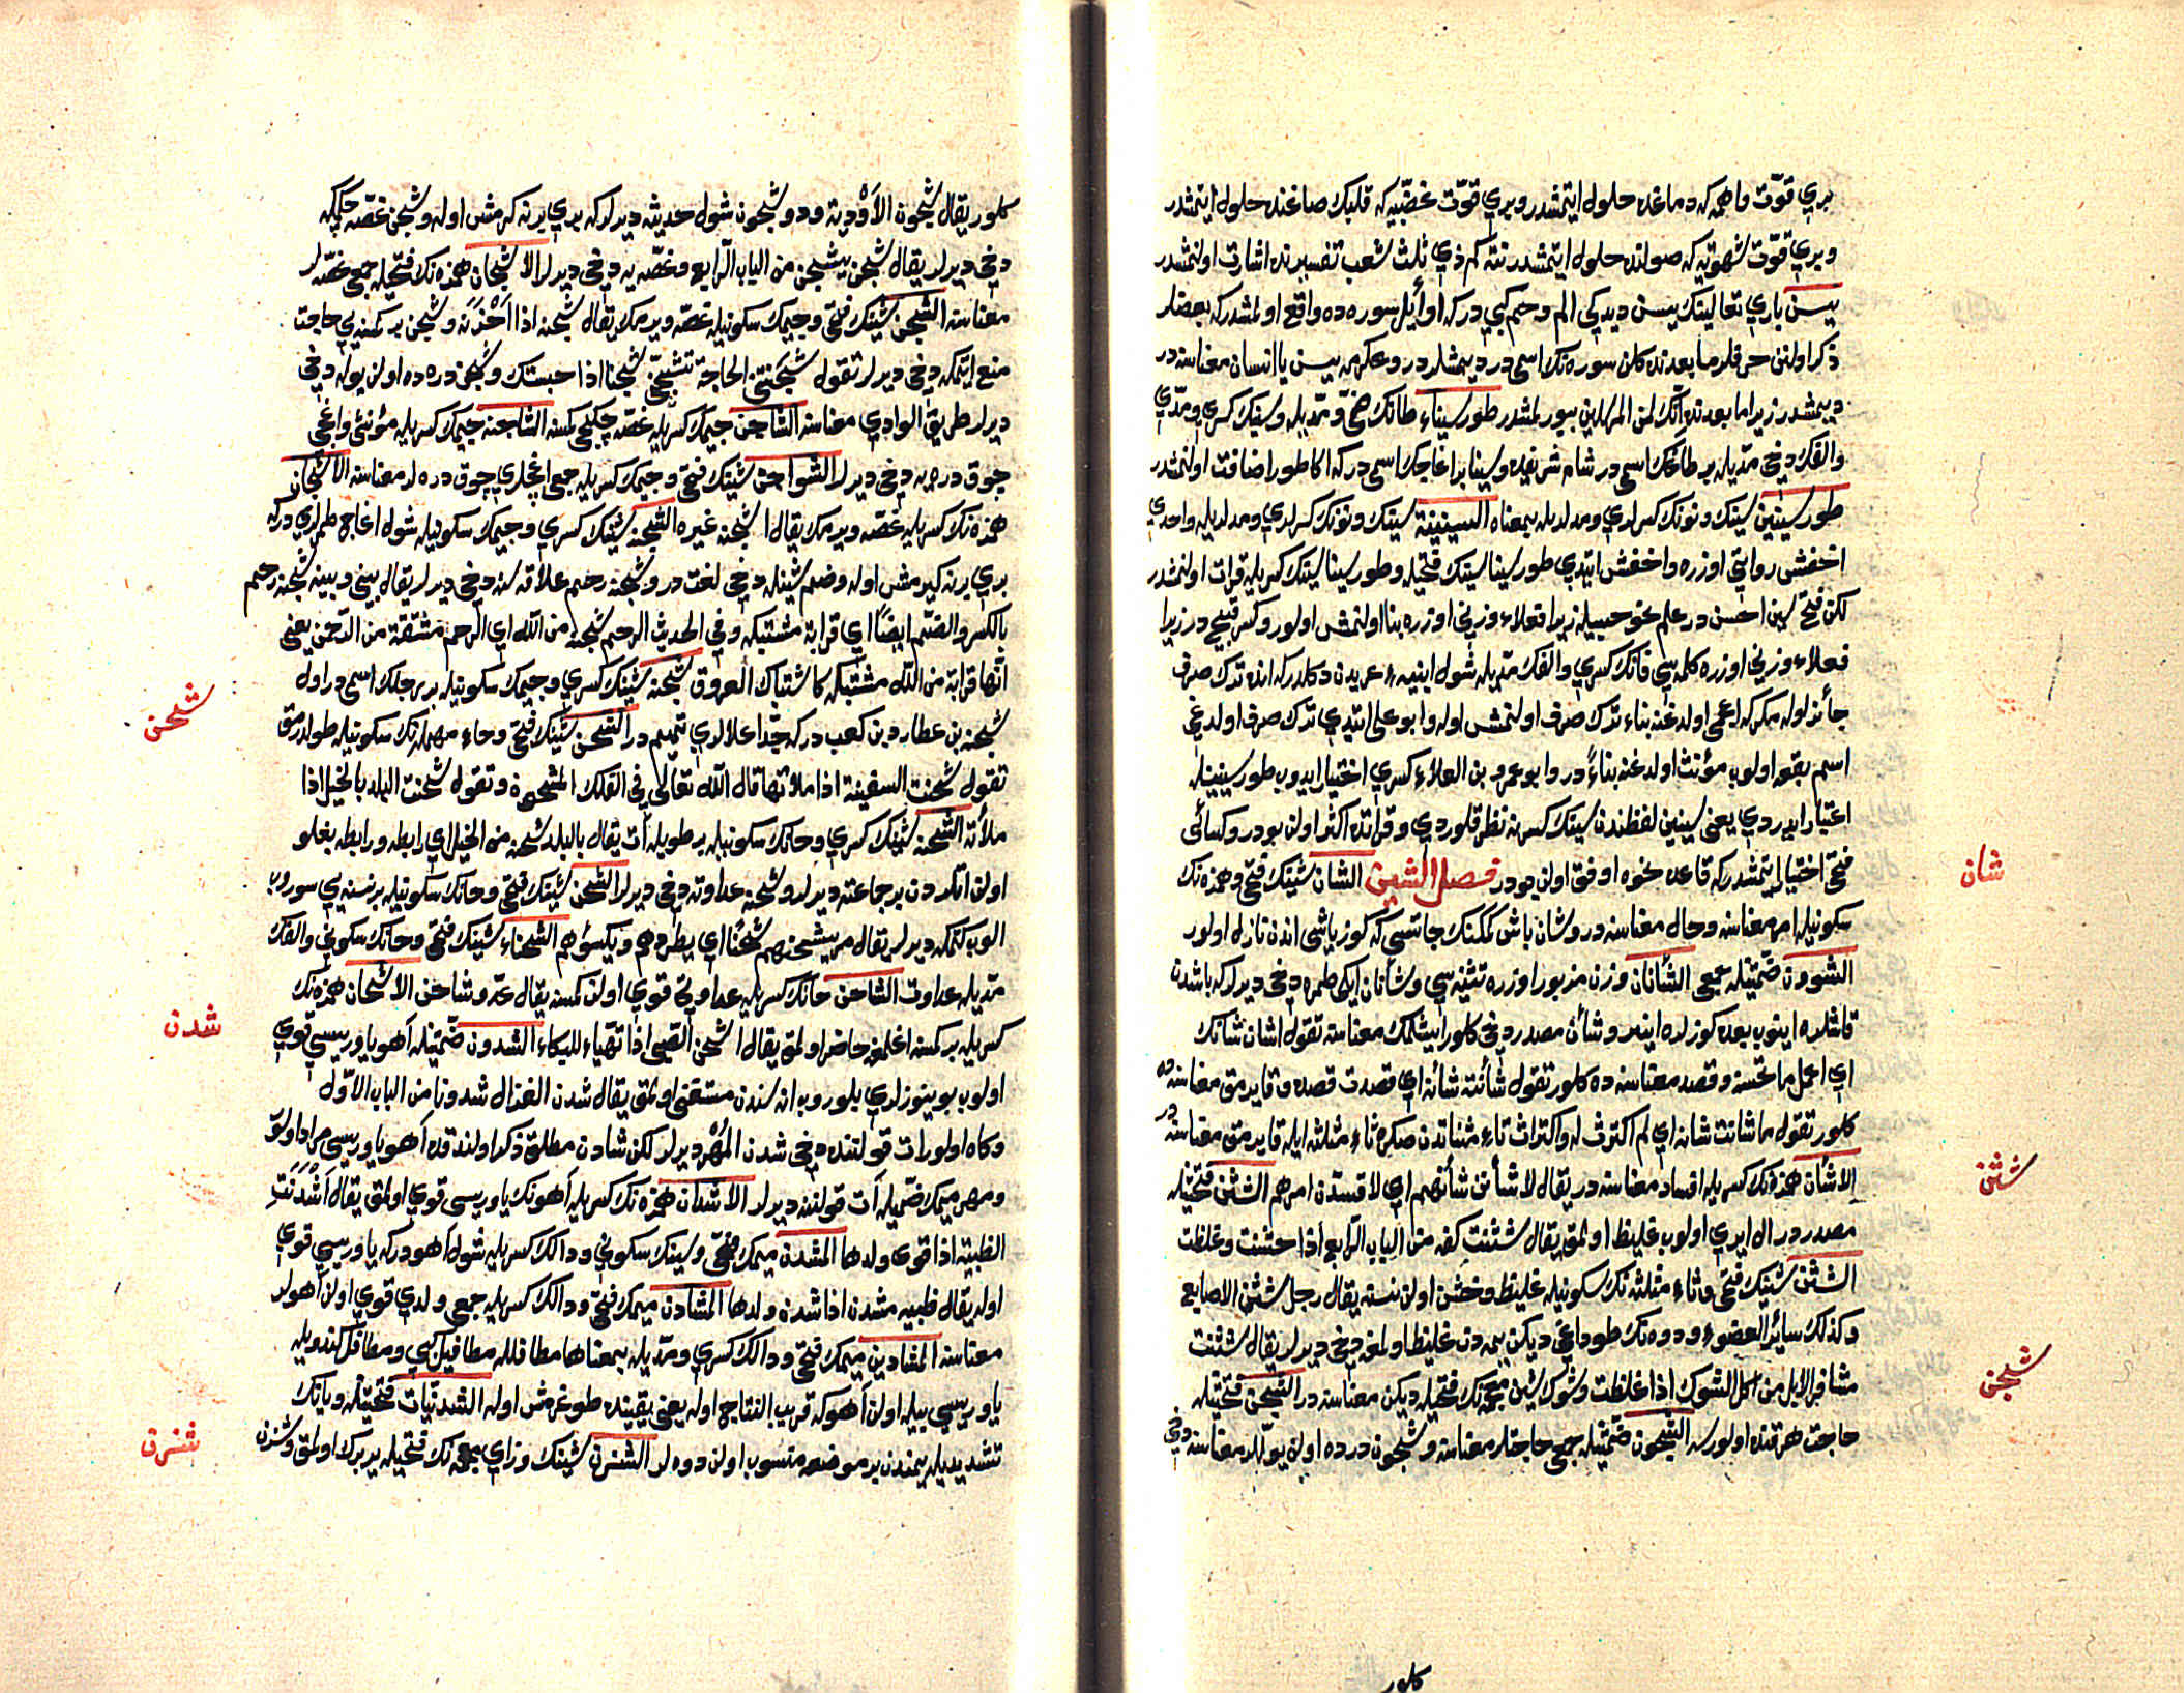 بري قوّت واهمه كه دماغده حلول ايتمشدر وبري قوّت غضبيّه كه قلبك صاغنده حلول ايتمشدر
وبري قوّت شهويّه كه صولنده حلول ايتمشدر نته كم ذي ثلث شعب تفسيرنده اشارت اولنمشدر
يسن باري تعالينك يسن ديديكي الم وحم كبي دركه اوائل سوره ده واقع اولمشدركه بعضلر
ذكر اولنن حرفلر مابعدنده كلن سوره نك اسمى در ديمشلردر وعكرمه يسن يا انسان معناسنه در
ديمشدر زيرا مابعدنده انّك لمن المرسلين بيورلمشدر طور سيناء طانك ضمّي ومدّيله وسينك كسري ومدّي
والفك دخي مدّيله بر طاغك اسمى در شام شريفده وسينا بر اغاجك اسمى دركه اكا طور اضافت اولنمشدر
طور سينين سينك ونونك كسرلري ومدلريله بمعناه السينينة سينك ونونك كسرلري ومدلريله واحدي
اخفش روايتي اوزره واخفش ايتدي طور سينا سينك فتحيله وطور سينا سينك كسريله قرائت اولنمشدر
لكن فتح سين احسن در علم نحو حسبيله زيرا فعلاء وزني اوزره بنا اولنمش اولور وكسر قبيح در زيرا
فعلاء وزني اوزره كلمه سي فانك كسري والفك مدّيله شول ابنيه ء عربدن دكلدركه انده ترك صرف
جائز اوله مكركه اعجمى اولدغنه بناء ترك صرف اولنمش اوله وابو على ايتدي ترك صرف اولدغي
اسم بقعه اولوب مؤنث اولدغنه بناءً در وابو عمرو بن العلاء كسري اختيار ايدوب طور سينينله
اعتبار ايدردي يعنى سينين لفظندن سينك كسرنه نظر قلوردي وقرائتده اكثر اولن بودر وكسائى
فتحي اختيار ايتمشدركه قاعده نحوه اوفق اولن بودر فصل الشين الشان شينك فتحي وهمزه نك
سكونيله امر معناسنه وحال معناسنه در وشان باش كمكنك چاتسي كه كوز ياشى اندن نازل اولور
الشوون ضمّتينله جمعى الشانان وزن مزبور اوزره تثنيه سي وشانان ايكى طمره دخي ديرلركه باشدن
قاشلره اينوب بعده كوزلره اينر وشان مصدر دخي كلور ايشلمك معناسنه تقول اشان شانك
اي اعمل ما تحسنه وقصد معناسنه ده كلور تقول شأنت شأنه اي قصدت قصده وقايرمق معناسنه ده
كلور تقول ماشانت شانه اي لم اكترث له واكتراث تاء مثناتدن صكره ثاء مثلثه ايله قايرمق معناسنه در
الاشان همزه نك كسريله افساد معناسنه در يقال لاشأنن شأنهم اي لافسدن امرهم الشثن فتحتينله
مصدر در ال ايري اولوب غليظ اولمق يقال شثنت كفه من الباب الرابع اذا خشنت وغلظت
الشثن شينك فتحي وثاء مثلثه نك سكونيله غليظ وخشن اولن نسنه يقال رجل شثن الاصابع
وكذلك سائر العضوء ودوه نك طوداغى ديكن يمه دن غليظ اولمغه دخي ديرلر يقال شثنت
مشافر الابل من اكل الشوك اذا غلظت وشوك شين معجمه نك فتحيله ديكن معناسنه در الشجن فتحتينله
حاجت هر قنده اولورسه الشجون ضمّتينله جمعى حاجتلر معناسنه وشجون دردده اولن يوللر معناسنه دخي
كلور
شان
شثن
شجن
كلور يقال شجون الاَوْدية ودو شجون شول حديثه ديرلركه بري برينه كرمش اوله وشجن غصّه چكمكه
دخي ديرلر يقال شجن يشجن من الباب الرابع وغصّه يه دخي ديرلر الاشجان همزه نك فتحيله جمعى غصّه لر
معناسنه الشجن شينك فتحي وجيمك سكونيله غصّه ويرمك يقال شجنه اذا اَحْزَنَه وشجن بر كمسنه يي حاجت
منع ايتمكه دخي ديرلر تقول شَجَنَتْنى الحاجة تشجن شجنا اذا حبستك وشجن دره ده اولن يوله دخي
ديرلر طريق الوادي معناسنه الشاجن جيمك كسريله غصّه چكيجي كمسنه الشاجنه جيمك كسريله مؤنثى واغجى
چوق دره يه دخي ديرلر الشواجن شينك فتحي وجيمك كسريله جمعى اغجلري چوق دره لر معناسنه الاشجان
همزه نك كسريله غصّه ويرمك يقال اشجنه غيره الشجنه شينك كسري وجيمك سكونيله شول اغاج طمرلري دركه
بري برينه كيرمش اوله وضم شينله دخي لغت در وشجنه رحم علاقه سنه دخي ديرلر يقال بيني وبينه شجنه رحم
بالكسر والضم ايضاً اي قرابة مشتبكه وفي الحديث الرحم شجنة من الله اي الرحم مشتقة من الرّحمن يعنى
انّها قرابة من الله مشتبكه كاشتباك العروق شجنه شينك كسري وجيمك سكونيله بر رجلك اسمى در اول
شجنه بن عطارد بن كعب دركه جدّ اعلالري تميم در الشحن شينك فتحي وحاء مهمله نك سكونيله طولدرمق
تقول شحنت السفينة اذا ملأتها قال الله تعالى في الفلك المشحون وتقول شحنت البلد بالخيل اذا
ملأته الشحنه شينك كسري وحانك سكونيله بر طويله آت يقال بالبلد شحنه من الخيل اي رابطه ورابطه بغلو
اولن اتلردن بر جماعته ديرلر وشحنه عداوته دخي ديرلر الشحن شينك فتحي وحانك سكونيله بر نسنه يي سوروب
الوب كتمكه ديرلر يقال مر يشحنهم شحنًا اي يطردهم ويكسؤهم الشحناء شينك فتحي وحانك سكوني والفك
مدّيله عداوت الشاحن حانك كسريله عداوتي قوي اولن كمسنه يقال عدو شاحن الاشحان همزه نك
كسريله بر كمسنه اغلمغه حاضر اولمق يقال اشحن الصّبى اذا تهيّاء للبكاء الشدون ضمّتينله آهو ياوريسي قوي
اولوب بوينوزلري بلوروب اناسندن مستغنى اولمق يقال شدن الغزال شدونا من الباب الاوّل
وكاه اولور ات قولننده دخي شدن المُهر ديرلر لكن شادن مطلق ذكر اولندقده آهو ياوريسي مراد اولور
ومهر ميمك ضميله آت قولننه ديرلر الاشدان همزه نك كسريله آهونك ياوريسى قوي اولمق يقال اَشْدَنَتِ
الظبية اذا قوى ولدها المشدن ميمك ضمّي وشينك سكوني ودالك كسريله شول آهو دركه ياوريسي قوي
اوله يقال ظبيه مشدن اذا شدن ولدها المشادن ميمك فتحي ودالك كسريله جمعى ولدي قوي اولن آهولر
معناسنه المشادين ميمك فتحي ودالك كسري ومدّيله بمعناها مطافل له مطافيل كبي ومطافل كندويله
ياوريسي بيله اولن آهو كه قريب النتاج اوله يعنى يقينده طوغرمش اوله الشدنيات فتحتينله ويانك
تشديديله يمندن بر موضعه منسوب اولن دوه لر الشزن شينك وزاي معجمه نك فتحيله ير برك اولمق وشزن
شحن
شدن
شزن